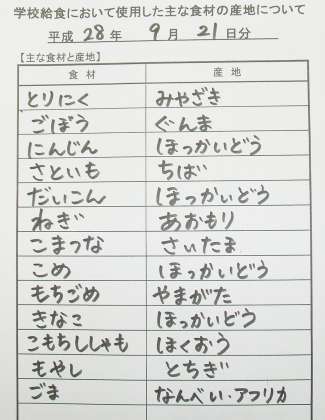 学校給食において使用した主な食材の産地について
平成 28 年 9 月 21 日分
【主な食材と産地】
食材 産地
とりにく みやざき
ごぼう ぐんま
にんじん ほっかいどう
さといも ちば
だいこん ほっかいどう
ねぎ あおもり
こまつな さいたま
こめ ほっかいどう
もちごめ やまがた
きなこ ほっかいどう
こもちししゃも ほくおう
もやし とちぎ
ごま なんべい・アフリカ